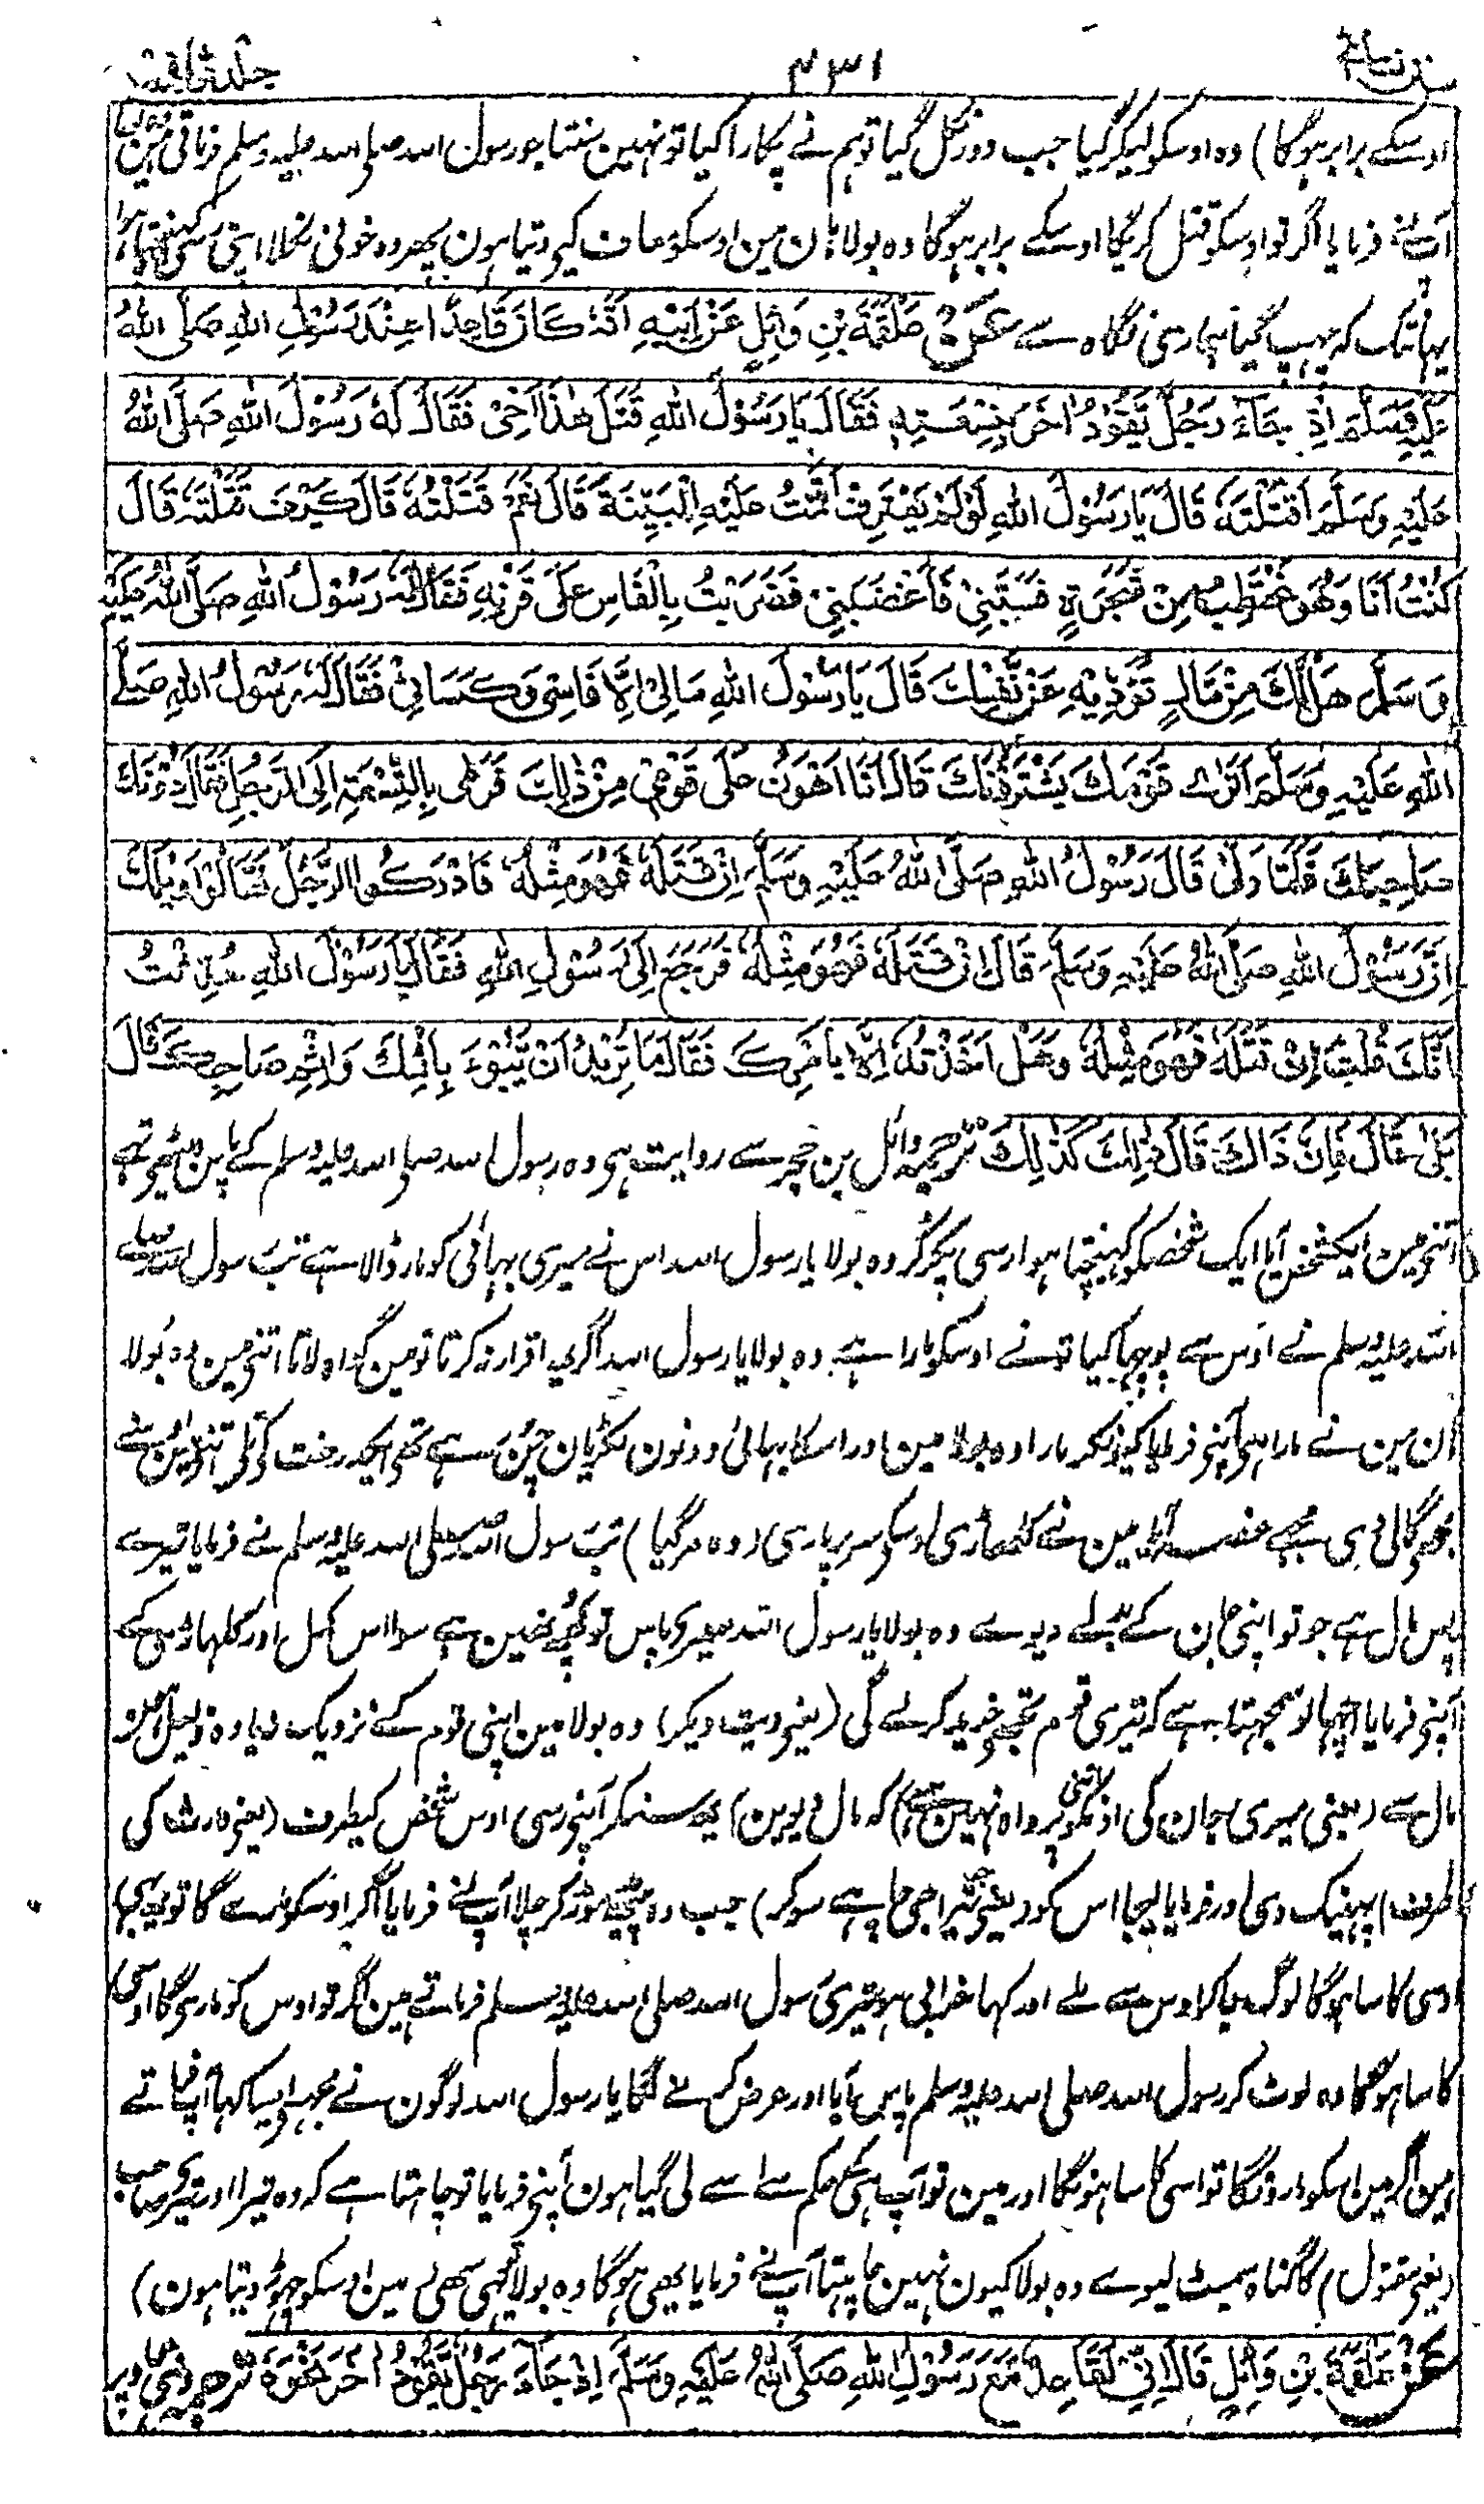 ۴۳۱
اوسکے برابر ہوگا) وہ اوسکو لیکر گیا جب دور نکل گیا تو ہم نے پکارا کیا تو نہین سنتا جو رسول اللہ صلی اللہ علیہ وسلم فرماتی ہین
آپنے فرمایا اگر تو اوسکو قتل کریگا اوسکے برابر ہوگا وہ بولا ہان مین اوسکو معاف کیی دیتا ہون پھر وہ خونی نکلا اپنی رسی کہینچتا ہوا
یہانتک کہ چہپ گیا ہماری نگاہ سے عَنْ عَلْقَمَةَ بْنِ وَائِلٍ عَنْ أَبِيْهِ اَنَّهُ كَانَ قَاعِدًا عِنْدَ رَسُوْلِ اللهِ صَلَّى اللهُ
عَلَيْهِ وَسَلَّمَ اِذْ جَآءَ رَجُلٌ يَقُوْدُ اٰخَرَ بِنِسْعَتِهٖ فَقَالَ يَا رَسُوْلَ اللهِ قَتَلَ هٰذَا اَخِيْ فَقَالَ لَهُ رَسُوْلُ اللهِ صَلَّى اللهُ
عَلَيْهِ وَسَلَّمَ اَقَتَلْتَهُ قَالَ يَا رَسُوْلَ اللهِ لَوْ لَمْ يَعْتَرِفْ اَقَمْتُ عَلَيْهِ الْبَيِّنَةَ قَالَ نَعَمْ قَتَلْتُهُ قَالَ كَيْفَ قَتَلْتَهُ قَالَ
كُنْتُ اَنَا وَهُوَ نَحْتَطِبُ مِنْ شَجَرَةٍ فَسَبَّنِيْ فَاَغْضَبَنِيْ فَضَرَبْتُ بِالْفَاسِ عَلٰى قَرْنِهِ فَقَالَ لَهُ رَسُوْلُ اللهِ صَلَّى اللهُ عَلَيْهِ
وَسَلَّمَ هَلْ لَكَ مِنْ مَالٍ تُؤَدِّيْهِ عَنْ نَّفْسِكَ قَالَ يَا رَسُوْلَ اللهِ مَالِيْ اِلَّا فَاسِيْ وَكِسَائِيْ فَقَالَ لَهُ رَسُوْلُ اللهِ صَلَّى
اللهُ عَلَيْهِ وَسَلَّمَ اَتُرٰى قَوْمَكَ يَشْتَرُوْنَكَ قَالَ اَنَا اَهْوَنُ عَلٰى قَوْمِيْ مِنْ ذٰلِكَ فَرَمٰى بِالنِّسْعَةِ اِلَى الرَّجُلِ فَقَالَ دُوْنَكَ
صَاحِبَكَ فَلَمَّا وَلّٰى قَالَ رَسُوْلُ اللهِ صَلَّى اللهُ عَلَيْهِ وَسَلَّمَ اِنْ قَتَلَهُ فَهُوَ مِثْلُهُ فَاَدْرَكُوا الرَّجُلَ فَقَالُوْا وَيْلَكَ
اِنَّ رَسُوْلَ اللهِ صَلَّى اللهُ عَلَيْهِ وَسَلَّمَ قَالَ اِنْ قَتَلَهُ فَهُوَ مِثْلُهُ فَرَجَعَ اِلٰى رَسُوْلِ اللهِ فَقَالَ يَا رَسُوْلَ اللهِ حُدِّثْتُ
اَنَّكَ قُلْتَ اِنْ قَتَلَهُ فَهُوَ مِثْلُهُ وَهَلْ اَخَذْتُهُ اِلَّا بِاَمْرِكَ فَقَالَ مَا تُرِيْدُ اَنْ يَّبُوْءَ بِاِثْمِكَ وَاِثْمِ صَاحِبِكَ قَالَ
بَلٰى قَالَ فَاِنَّ ذَاكَ قَالَ ذٰلِكَ كَذٰلِكَ ترجمہ وائل بن حجر سے روایت ہی وہ رسول اللہ صلی اللہ علیہ وسلم کے پاس بیٹھی تھے
اتنے مین ایکشخص آیا ایک شخصکو کہینچتا ہوا رسی پکڑکر وہ بولا یا رسول اللہ اس نے میری بہائی کو مار ڈالا ہے تب رسول اللہ صلے
اللہ علیہ وسلم نے اوس سے پوچہا کیا تونے اوسکو مارا ہے وہ بولا یا رسول اللہ اگر یہ اقرار نہ کرتا تو مین گواہ لاتا اتنی مین وہ بولا
ان مین نے مارا ہی آپنی فرمایا کیونکر مارا وہ بولا مین اور اسکا بہائی دونون لکڑیان چن رہے تھی ایکدرخت کے تلی اتنی مین اس نے
مجھی گالی دی مجھے غصہ آیا مین نے کلہاڑی اوسکی سر پر ماری (وہ مرگیا) تب رسول اللہ صلی اللہ علیہ وسلم نے فرمایا تیرے
پاس مال ہے جو تو اپنی جان کے بدلے دیوے وہ بولا یا رسول اللہ میری پاس تو کچھ نہین ہے سوا اس کمل اور کلہاڑی کے
آپنی فرمایا اچہا تو سمجہتا ہے کہ تیری قوم تجھے خرید کرلے گی (یعنی دیت دیکر) وہ بولا مین اپنی قوم کے نزدیک زیادہ ذلیل ہون
مال سے (یعنی میری جان کی اونکو اتنی پرواہ نہین ہے) کہ مال دیوین) یہ سنکر آپنی رسی اوس شخص کیطرف (یعنی وارث کی
طرف) پہینک دی اور فرمایا لیجا اس کو (یعنی تیرا جی چاہے سو کر) جب وہ پیٹھہ موڑ کر چلا آپنے فرمایا اگر اوسکو مارے گا تو یہ بہی
اوسی کا سا ہوگا لوگ جاکر اوس سے ملے اور کہا خرابی ہو تیری رسول اللہ صلی اللہ علیہ وسلم فرماتے ہین اگر تو اوس کو ماریگا اوسی
کا سا ہوگا وہ لوٹ کر رسول اللہ صلی اللہ علیہ وسلم پاس آیا اور عرض کرنے لگا یا رسول اللہ لوگون نے مجہہ سے ایسا کہا آپ فرماتے
ہین اگر مین اسکو مارونگا تو اسی کا سا ہونگا اور مین تو آپ ہی کی حکم سے اسے لی گیا ہون آپنی فرمایا تو چاہتا ہے کہ وہ تیرا اور تیری صاحب
(یعنی مقتول) کا گناہ سمیٹ لیوے وہ بولا کیون نہین چاہتا آپنے فرمایا یہی ہوگا وہ بولا یہی سہی (مین اوسکو چہوڑ دیتا ہون)
عَنْ عَلْقَمَةَ بْنِ وَائِلٍ قَالَ اِنِّيْ لَقَاعِدٌ مَعَ رَسُوْلِ اللهِ صَلَّى اللهُ عَلَيْهِ وَسَلَّمَ اِذْ جَآءَ رَجُلٌ يَقُوْدُ اٰخَرَ نَحْوَهُ ترجمہ وہی جو اوپر